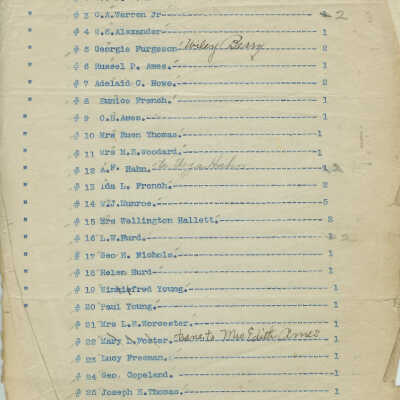 " # 3 G.A.Warren Jr 2
" # 4 S.S.Alexander 1
" # 5 Georgie Furgeson Wiley Berry 2
" # 6 Russel P. Ames. 1
" # 7 Adelaid C. Howe. 2
" # 8 Eunice French. 1
" # 9 O.H.Ames. 1
" # 10 Mrs Ruen Thomas. 1
" # 11 Mrs M.E.Woodard. 1
" # 12 A.F. Hahn. to Hahn 2
" # 13 Ida L. French. 2
" # 14 W.J.Munroe. 5
" # 15 Mrs Wellington Hallett. 2
" # 16 L.W.Hurd. 2
" # 17 Geo E. Nichols. 1
" # 18 Helen Hurd 1
" # 19 Winnifred Young. 1
" # 20 Paul Young. 1
# 21 Mrs L.E.Worcester. 1
# 22 Mary L.Foster. trans to Mrs Edith Ames 1
# 23 Lucy Freeman. 1
# 24 Geo. Copeland. 1
# 25 Joseph E.Thomas. 1